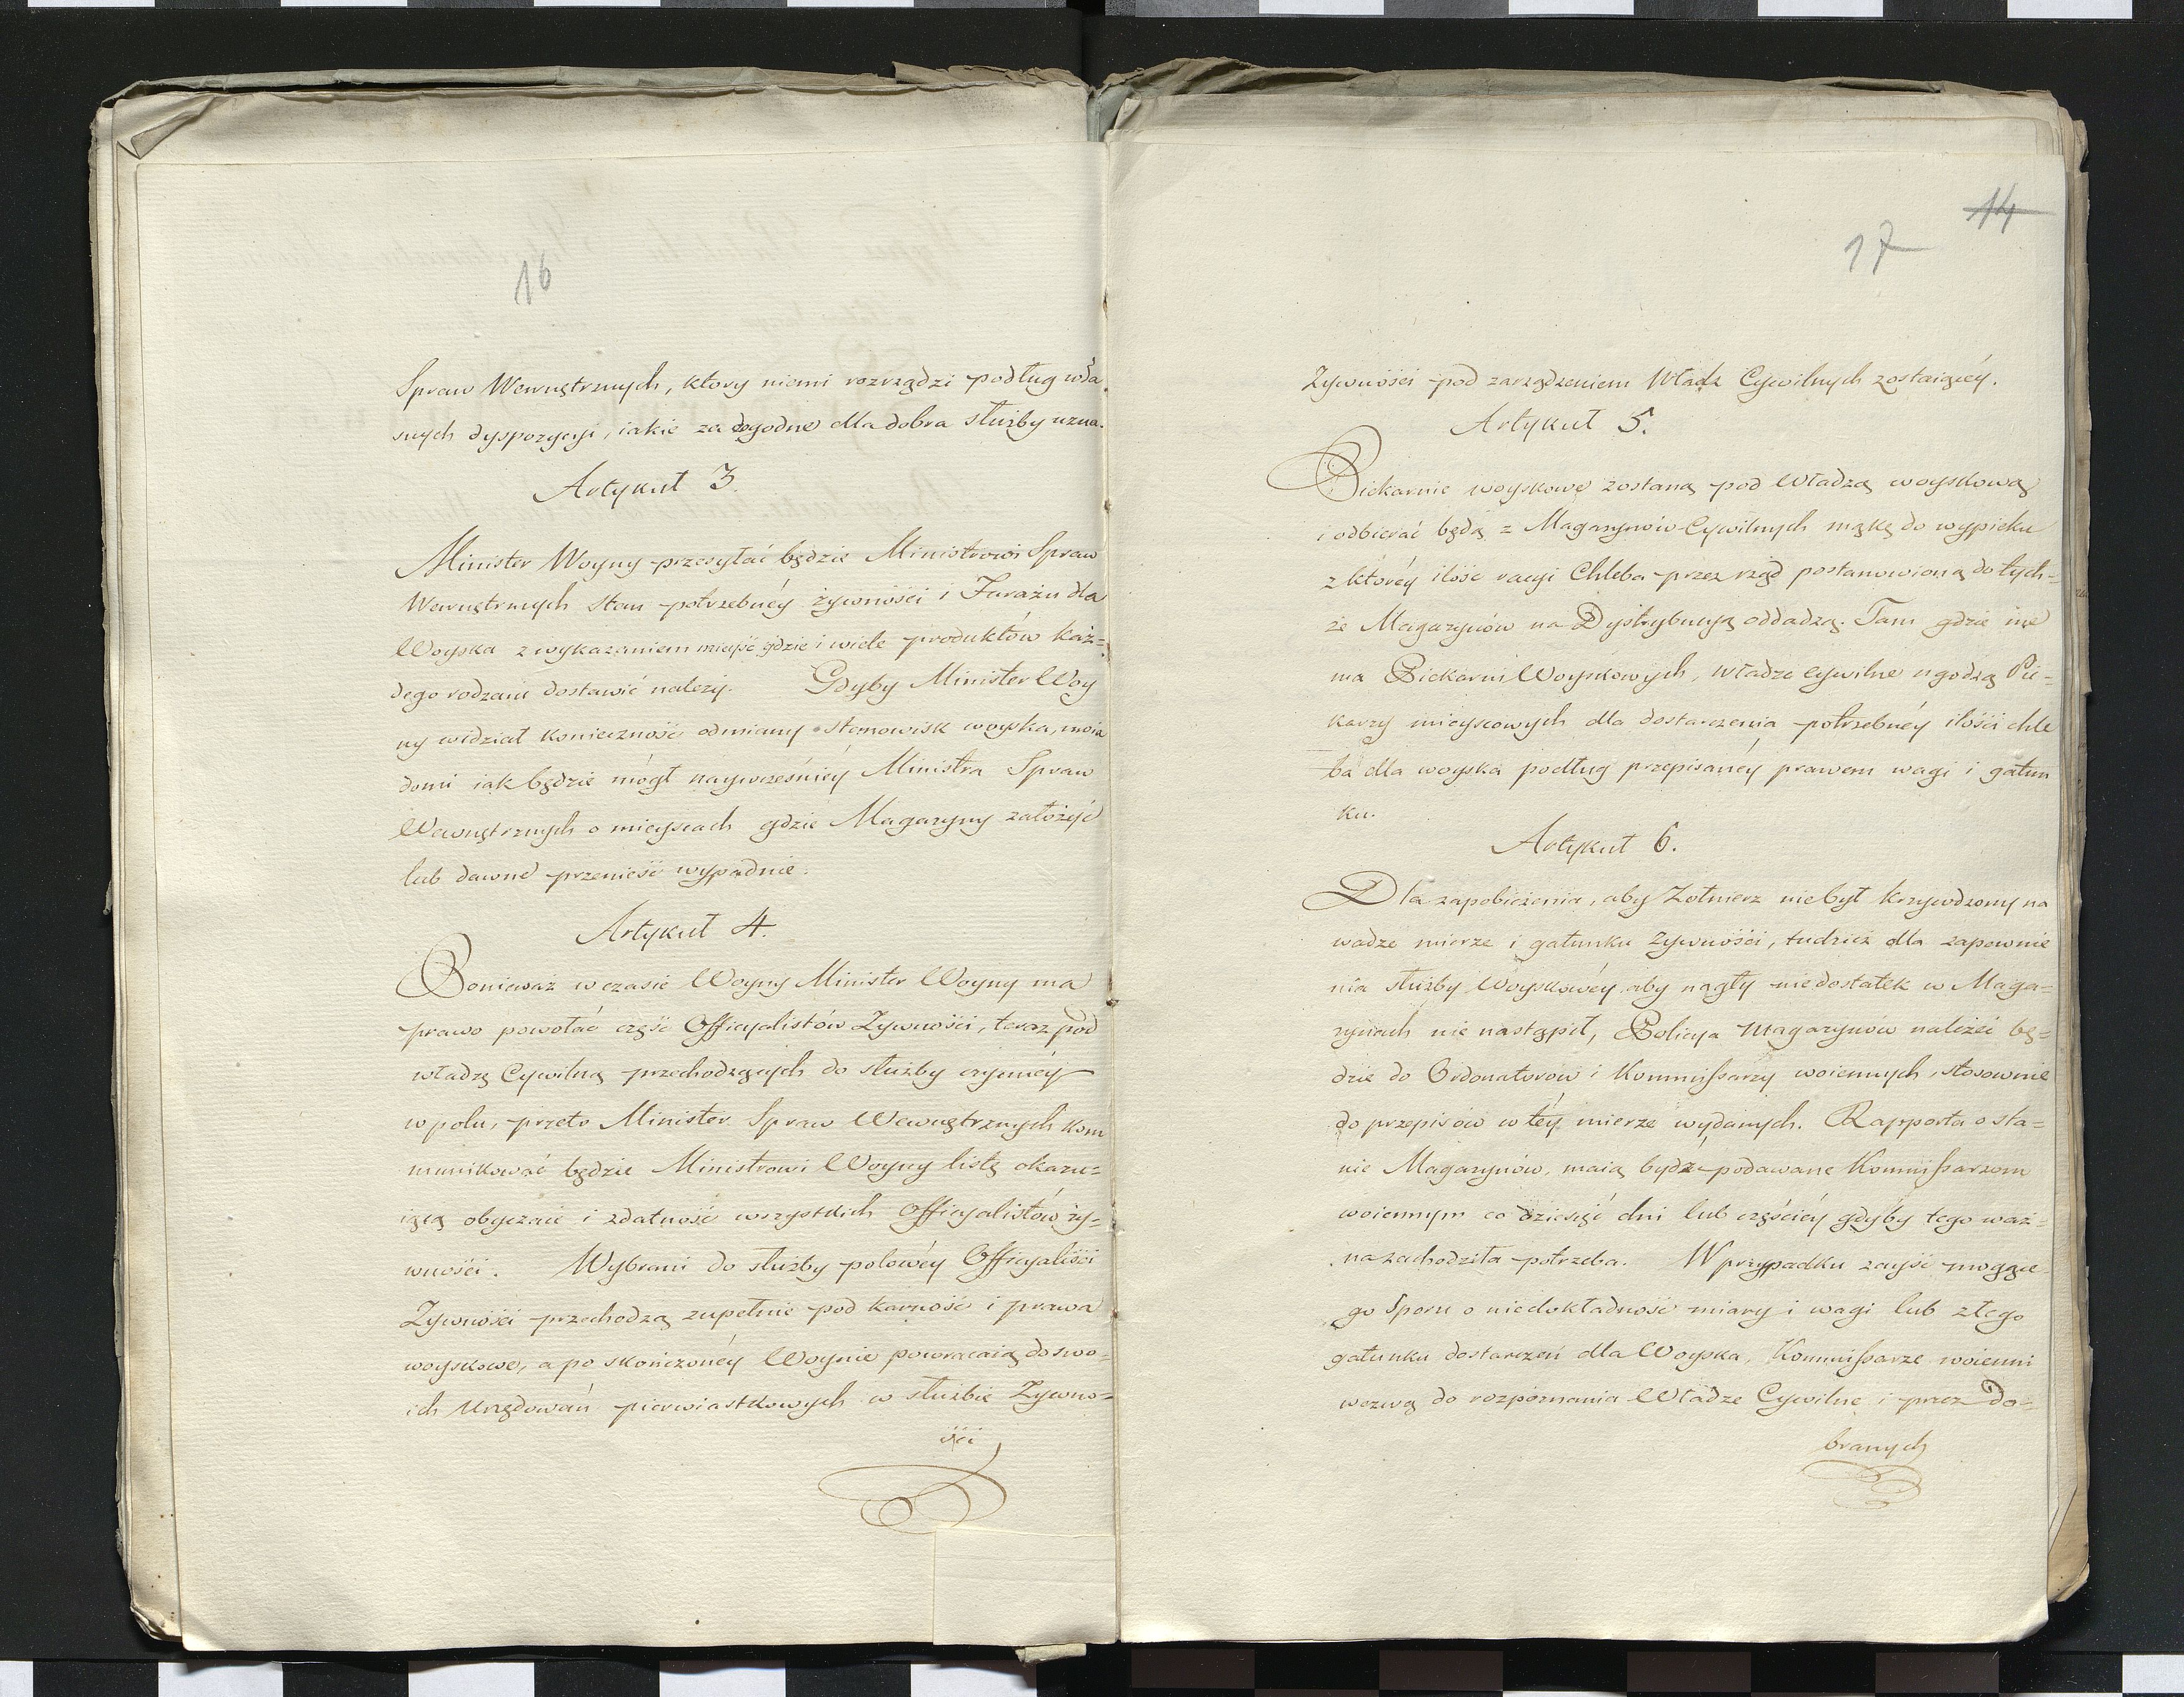 16
Spraw Wewnętrznych, ktory niemi rozrządzi podług wła
snych dyspozycyi, iakie za dogodne dla dobra służby uzna.
Artykuł 3.
Minister Woyny przesyłać będzie Ministrowi Spraw
Wewnętrznych stan potrzebnéy żywności i Furażu dla
Woyska z wykazaniem mieysc gdzie i wiele produktów każ=
dego rodzaiu dostawić należy. Gdyby Minister Woy
ny widział konieczność odmiany stanowisk woyska, uwia
domi iak będzie mógł naywcześniéy Ministra Spraw
Wewnętrznych o mieyscach gdzie Magazyny założyć
lub dawne przenieść wypadnie.
Artykuł 4.
Ponieważ w czasie Woyny Minister Woyny ma
prawo powołać część Officyalistów Żywności, teraz pod
władzę Cywilną przechodzących do służby czynnéy
w polu, przeto Minister Spraw Wewnętrznych kom
munikować będzie Ministrowi Woyny listę okazu=
iącą obyczaie i zdatność wszystkich Officyalistów ży=
wności. Wybrani do służby polowéy Officyaliści
Żywności przechodzą zupełnie pod karność i prawa
woyskowe, a po skończonéy Woynie powracaią do swo=
ich Urzędowań pierwiastkowych w służbie Żywno=
ści
14
17
Żywności pod zarządzeniem Władz Cywilnych zostaiącéy.
Artykuł 5.
Piekarnie woyskowe zostaną pod Władzą woyskową
i odbierać będą z Magazynów Cywilnych mąkę do wypieku
z któréy ilość racyi Chleba przez rząd postanowioną do tych=
że Magazynów na Dystrybucyą oddadzą. Tam gdzie nie
ma Piekarni Woyskowych, Władze Cywilne ugodzą Pie=
karzy mieyscowych dla dostarczenia potrzebnéy ilości chle
ba dla woyska podług przepisanéy prawem wagi i gatun
ku.
Artykuł 6.
Dla zapobieżenia, aby Żołnierz nie był krzywdzony na
wadze mierze i gatunku Żywności, tudzież dla zapewnie
nia służby Woyskowéy aby nagły niedostatek w Maga=
zynach nie nastąpił, Policya Magazynów należéć bę=
dzie do Ordonatorów i Kommissarzy woiennych, stosownie
do przepisów w téy mierze wydanych. Rapporta o sta=
nie Magazynów, maią bydź podawane Kommissarzom
woiennym co dziesięć dni lub częściéy gdyby tego waż=
na zachodziła potrzeba. W przypadku zayść mogące
go sporu o niedokładność miary i wagi lub złego
gatunku dostarczeń dla Woyska, Kommissarze woienni
wezwą do rozpoznania Władze Cywilne i przez do=
branych